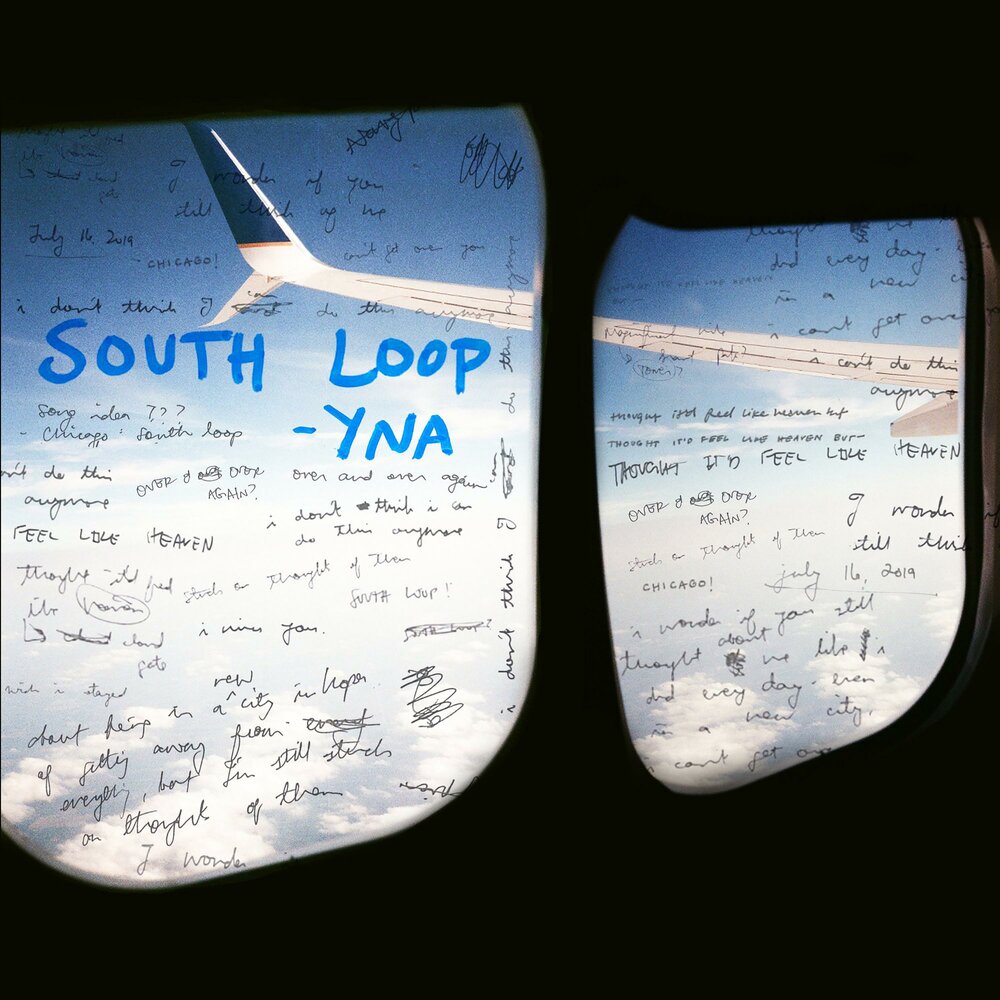 I wonder if you
still think of me
July 16, 2019
- CHICAGO!
can't get over you
i don't think I can do this anymore
SOUTH LOOP
-YNA
Song idea ???
- Chicago: South loop
can't do this
anymore
OVER & OVER
AGAIN?
over and over again
i don't think i can
do this anymore
FEEL LIKE HEAVEN
thought it'd feel
like heaven
cloud
gate
stuck on thought of them
SOUTH LOOP!
i miss you.
SOUTH LOOP?
wish i stayed
about being in a new city in hopes
of getting away from
everything, but I'm still stuck
on thoughts of them
I wonder
i don't think I can do this anymore
thought
did every day -
in a new
i can't get over
THOUGHT IT'D FEEL LIKE HEAVEN
BUT -
magnificent mile
& grand
i can't do this
anymore
thought it'd feel like heaven but
THOUGHT IT'D FEEL LIKE HEAVEN BUT-
THOUGHT IT'D FEEL LIKE HEAVEN
OVER & OVER
AGAIN?
I wonder
still think
stuck on thought of them
CHICAGO!
july 16, 2019
i wonder if you still
thought about me like i
did every day - even
in a new city.
i can't get over